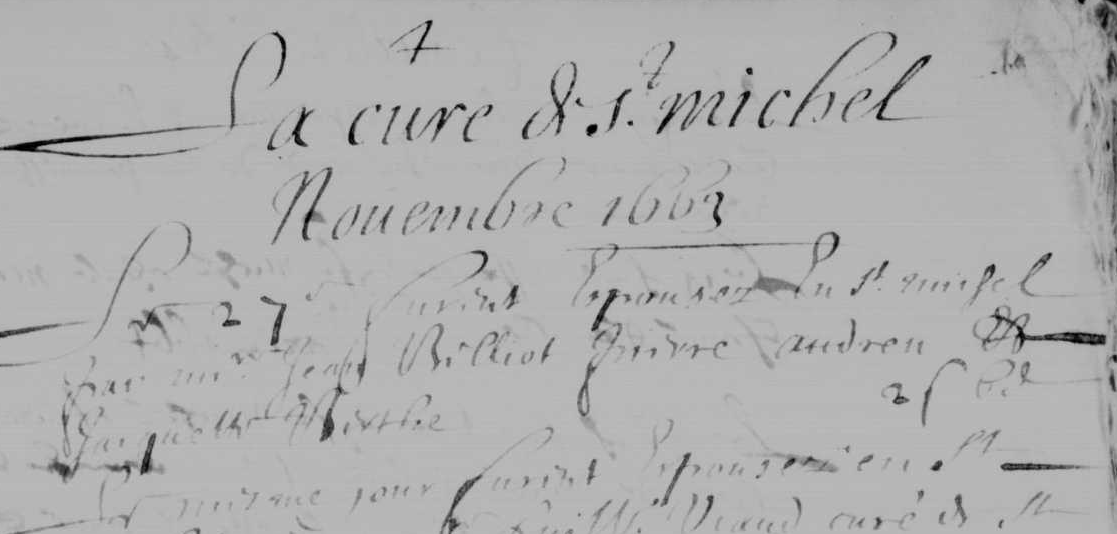 La cure de st. michel
Nouembre 1663
Le 27e furent Epousez En st. michel
par mre. Jean Billiot Pierre andreu &
Jacquette Berthe 2s 6d
Le mesme jour furent Epousez en st
Viaud curé de st